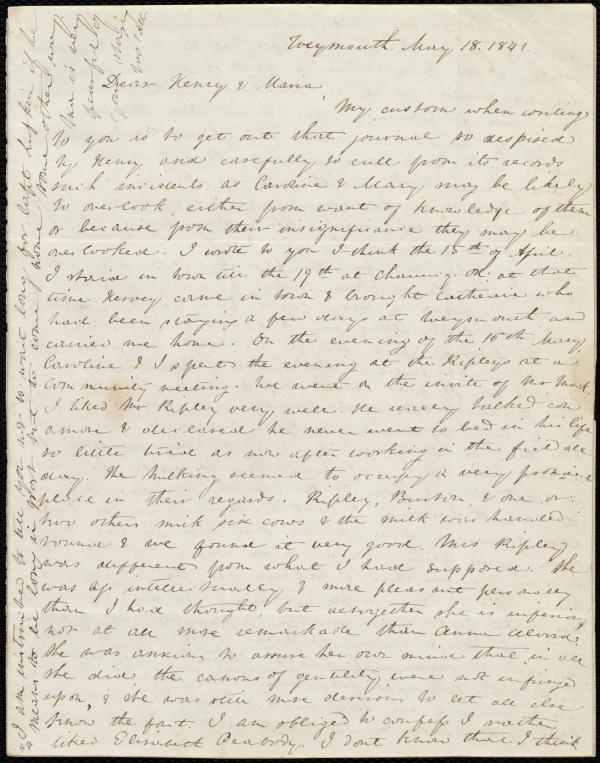 Weymouth. May 18. 1841.
Dear Henry & Maria,
My custom when writing
to you is to get out that journal so despised
by Henry and carefully to cull from its records
such incidents as Caroline & Mary may be likely
to overlook either from want of knowledge of them
or because from their insignificance they may be
overlooked. I wrote to you I think the 15th of April.
I staid in town till the 19th at Chauncy at that
time Hervey came in town & brought Catherine who
had been staying a few days at Weymouth and
carried me home. On the evening of the 16th Mary,
Caroline & I spent the evening at the Ripleys at a
community meeting. We went on the invite of Mr Mack.
I liked Mr. Ripley very well. He really talked con
amore & declared he never went to bed in his life
so little tired as now after working in the field all
day. The milking seemed to occupy a very prominent
place in their regards. Ripley, Burton, & one or
two others milk six cows & the milk was handed
round & we found it very good. Mrs Ripley
was different from what I had supposed. She
was less intellectually & more pleasant personally
than I had thought, but altogether she is inferior,
not at all more remarkable than Anna Alvord.
She was anxious to assure her own mind that in all
she did, the canons of gentility were not infringed
upon, & she was still more desirous to let all else
know the fact. I am obliged to confess I rather
liked Elizabeth Peabody. I dont know that I think
I am instructed to tell you not to wait long for Capt if he
means to be long in port but to come home some other way
Ma is very
fearful of
your staying